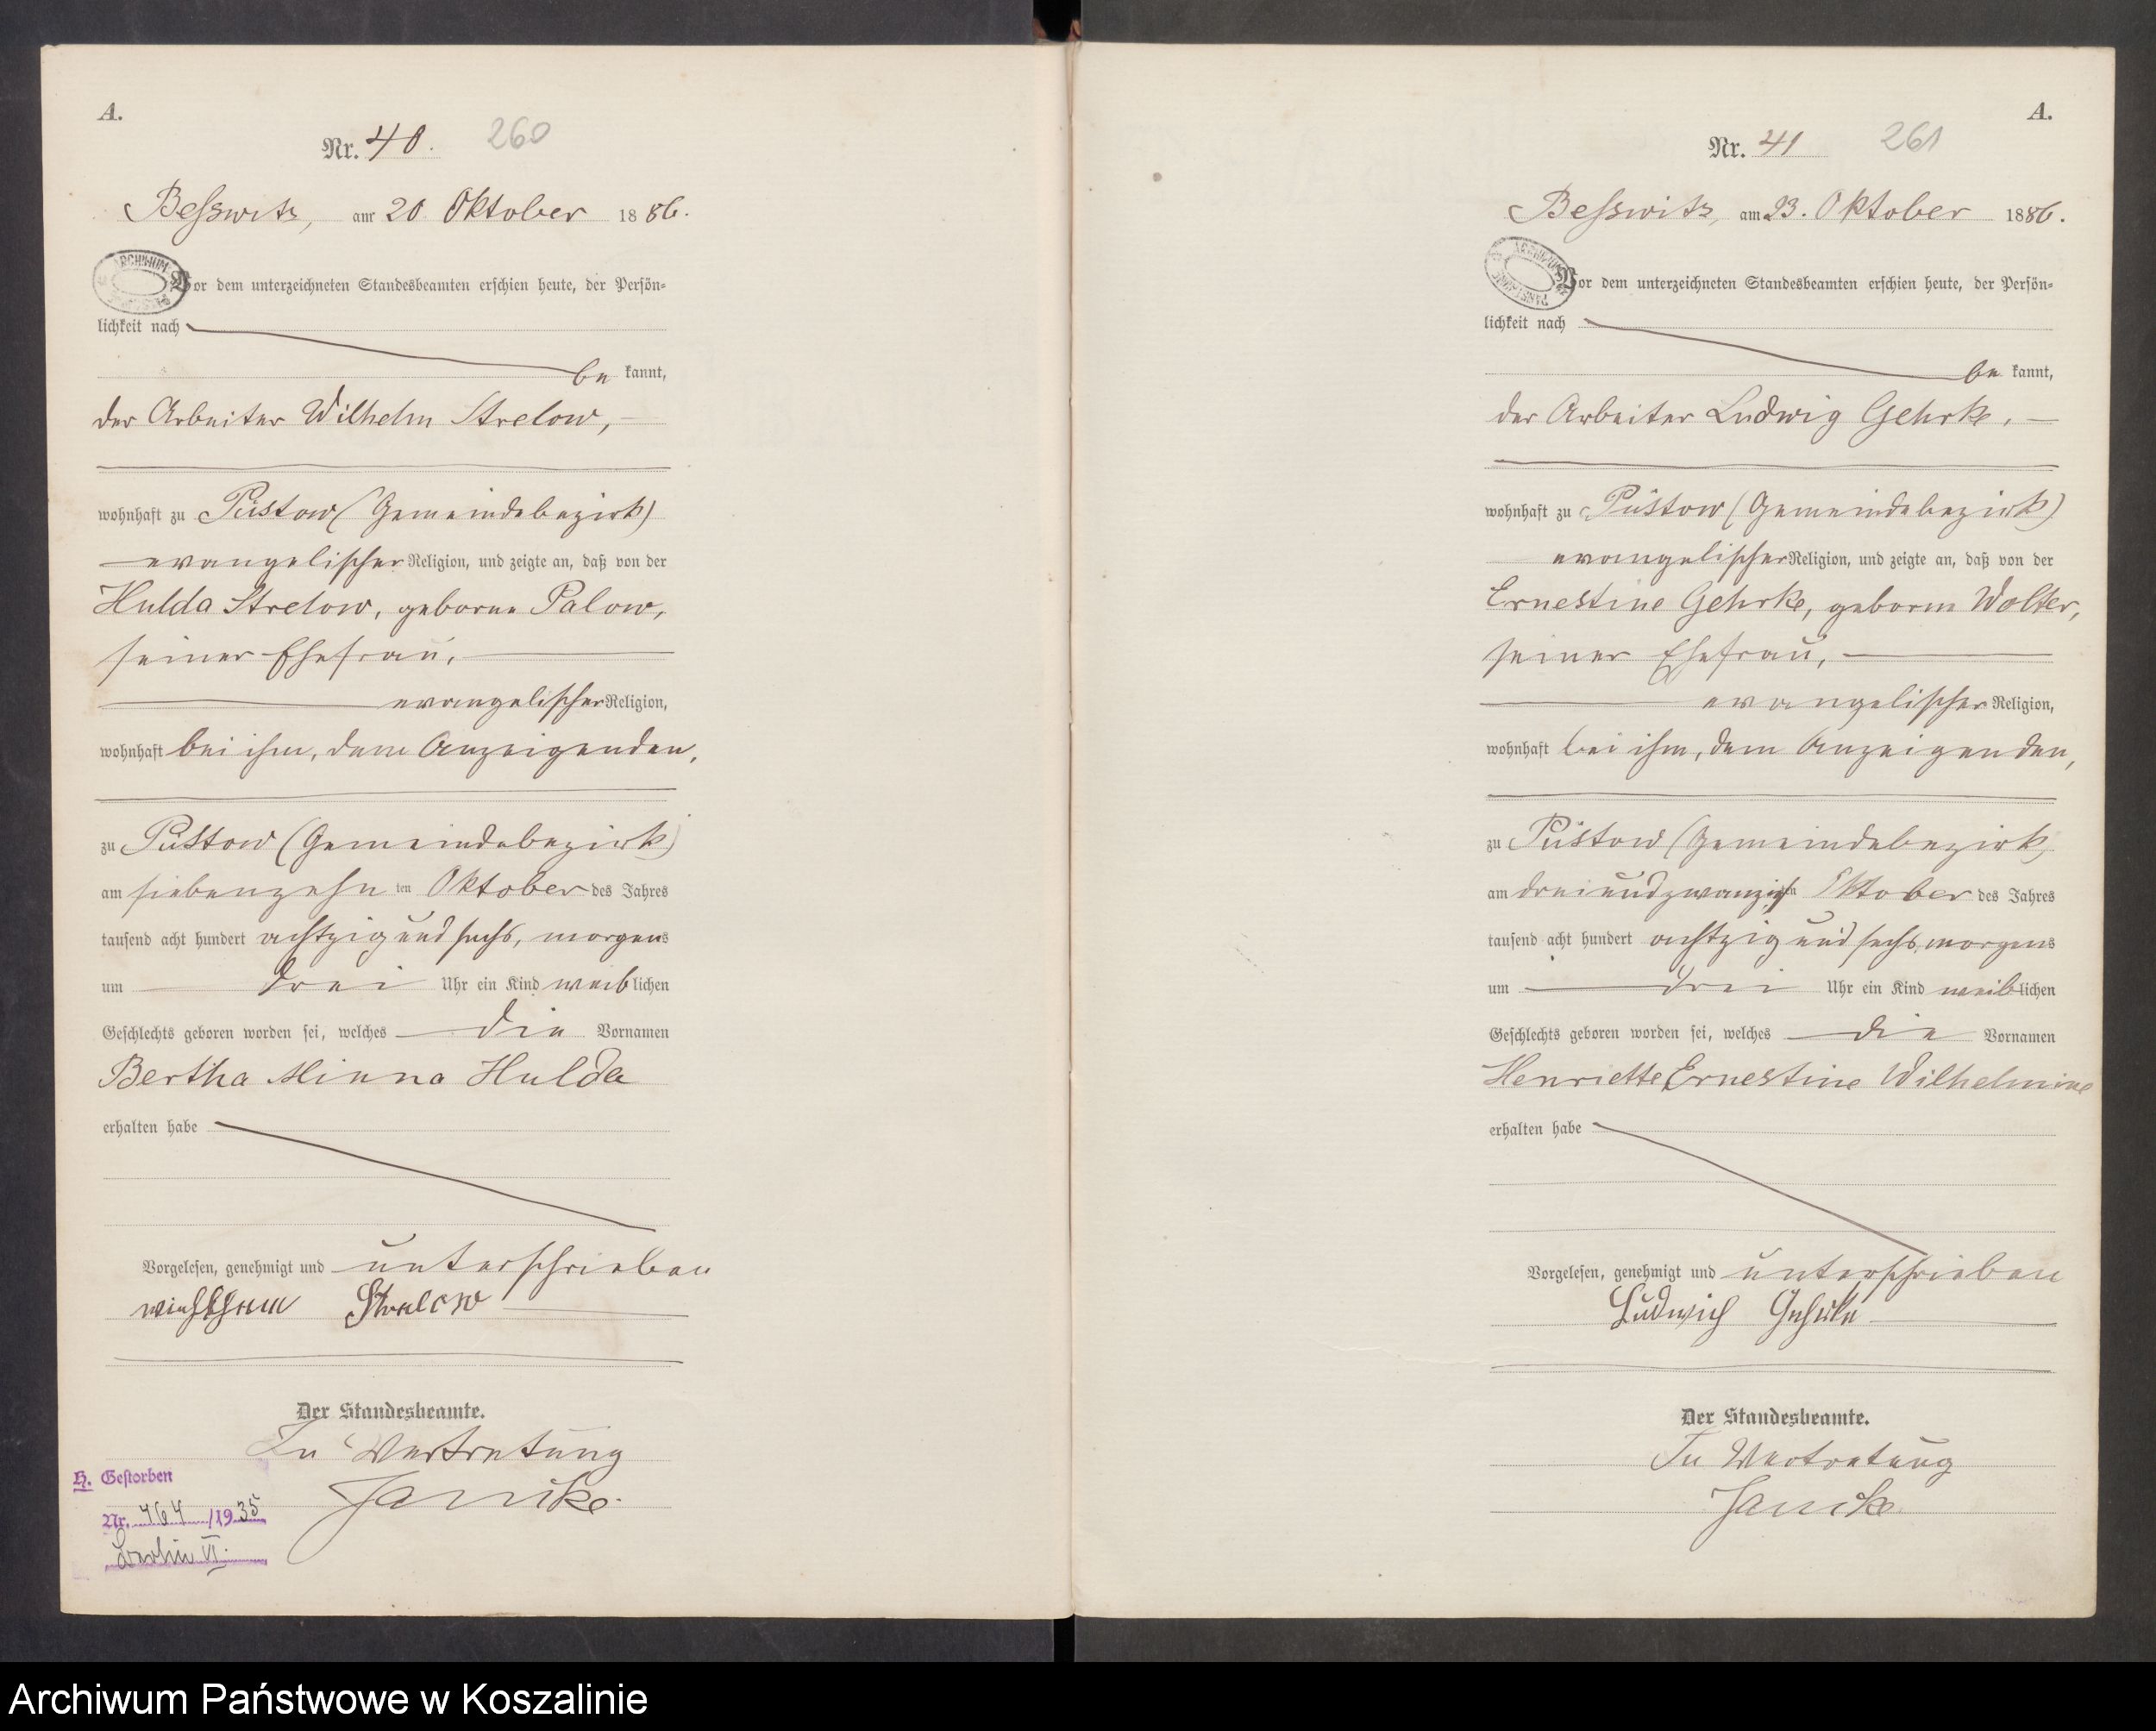 A.
Nr. 40. 260
Besswitz, am 20 Oktober 1886.
ARCHIWUM
Vor dem unterzeichneten Standesbeamten erschien heute, der Persön=
lichkeit nach
be kannt,
der Arbeiter Wilhelm Strelow,
wohnhaft zu Püstow (Gemeindebezirk)
evangelischer Religion, und zeigte an, daß von der
Hulda Strelow, geborne Palow,
seiner Ehefrau,
evangelischer Religion,
wohnhaft bei ihm, dem Anzeigenden,
zu Püstow (Gemeindebezirk)
am siebenzehn ten Oktober des Jahres
tausend acht hundert achtzig und sechs, morgens
um drei Uhr ein Kind weiblichen
Geschlechts geboren worden sei, welches die Vornamen
Bertha Minna Hulda
erhalten habe
Vorgelesen, genehmigt und unterschrieben
Strelow
Der Standesbeamte.
In Vertretung
Janike.
H. Gestorben
Nr. 464 /1935
Berlin VI.
A.
Nr. 41 261
Besswitz, am 23. Oktober 1886.
ARCHIWUM
Vor dem unterzeichneten Standesbeamten erschien heute, der Persön=
lichkeit nach
be kannt,
der Arbeiter Ludwig Gehrke,
wohnhaft zu Püstow (Gemeindebezirk)
evangelischer Religion, und zeigte an, daß von der
Ernestine Gehrke, geborne Wolter,
seiner Ehefrau,
evangelischer Religion,
wohnhaft bei ihm, dem Anzeigenden,
zu Püstow (Gemeindebezirk)
am dreiundzwanzigsten Oktober des Jahres
tausend acht hundert achtzig und sechs, morgens
um drei Uhr ein Kind weiblichen
Geschlechts geboren worden sei, welches die Vornamen
Henriette Ernestine Wilhelmine
erhalten habe
Vorgelesen, genehmigt und unterschrieben
Ludwich Gehrke
Der Standesbeamte.
In Vertretung
Janike
Archiwum Państwowe w Koszalinie